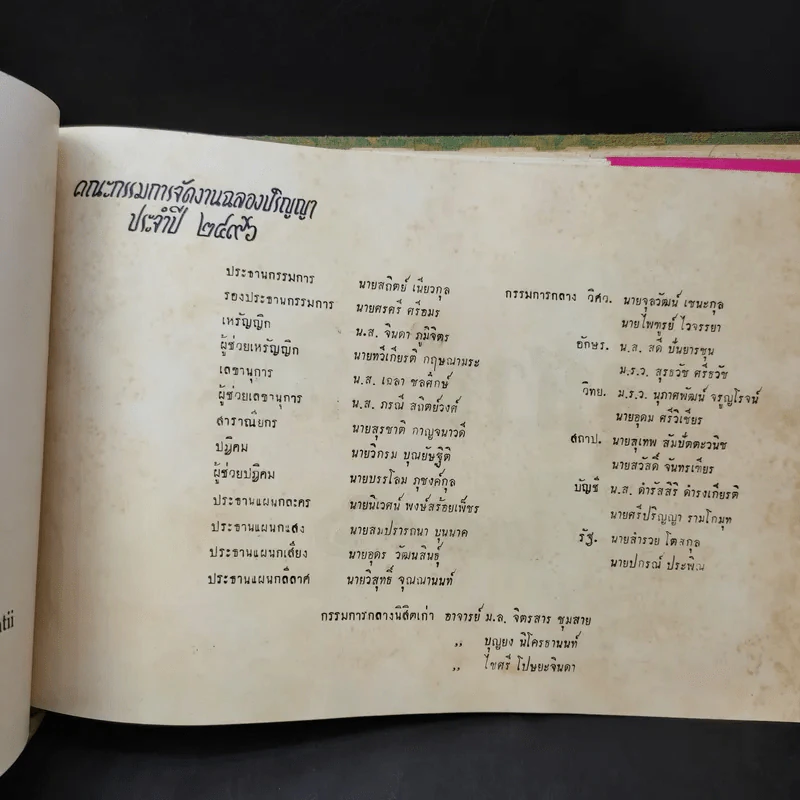 คณะกรรมการจัดงานฉลองปริญญา
ประจำปี ๒๔๙๖
ประธานกรรมการ นายสถิตย์ เนียวกุล
รองประธานกรรมการ นายศรศรี ศรีอมร
เหรัญญิก น.ส. จินดา ภูมิจิตร
ผู้ช่วยเหรัญญิก นายทวีเกียรติ กฤษณามระ
เลขานุการ น.ส. เฉลา ชลศึกษ์
ผู้ช่วยเลขานุการ น.ส. ภรณี สถิตย์วงศ์
สาราณียกร นายสุรชาติ กาญจนาวดี
ปฏิคม นายวิกรม บุณยัษฐิติ
ผู้ช่วยปฏิคม นายบรรโลม ภุชงค์กุล
ประธานแผนกละคร นายนิเวศน์ พงษ์สร้อยเพ็ชร
ประธานแผนกแสง นายสมปรารถนา บุนนาค
ประธานแผนกเสียง นายอุดร วัฒนสินธุ์
ประธานแผนกลีลาศ นายวิสุทธิ์ จุณณานนท์
กรรมการกลาง วิศว. นายจุลวัฒน์ เชนะกุล
นายไพฑูรย์ ไวจรรยา
อักษร. น.ส. สดี ปันยารชุน
ม.ร.ว. สุรธวัช ศรีธวัช
วิทย. ม.ร.ว. นุภาศพัฒน์ จรูญโรจน์
นายอุดม ศรีวิเชียร
สถาป. นายสุเทพ สัมปัตตะวนิช
นายสวัสดิ์ จันทรเทียร
บัญชี น.ส. ดำรัสสิริ ดำรงเกียรติ
นายศรีปริญญา รามโกมุท
รัฐ. นายสำรวย โตสกุล
นายปกรณ์ ประพิณ
กรรมการกลางนิสิตเก่า อาจารย์ ม.ล. จิตรสาร ชุมสาย
,, บุญยง นิโครธานนท์
,, ไขศรี โปษยะจินดา